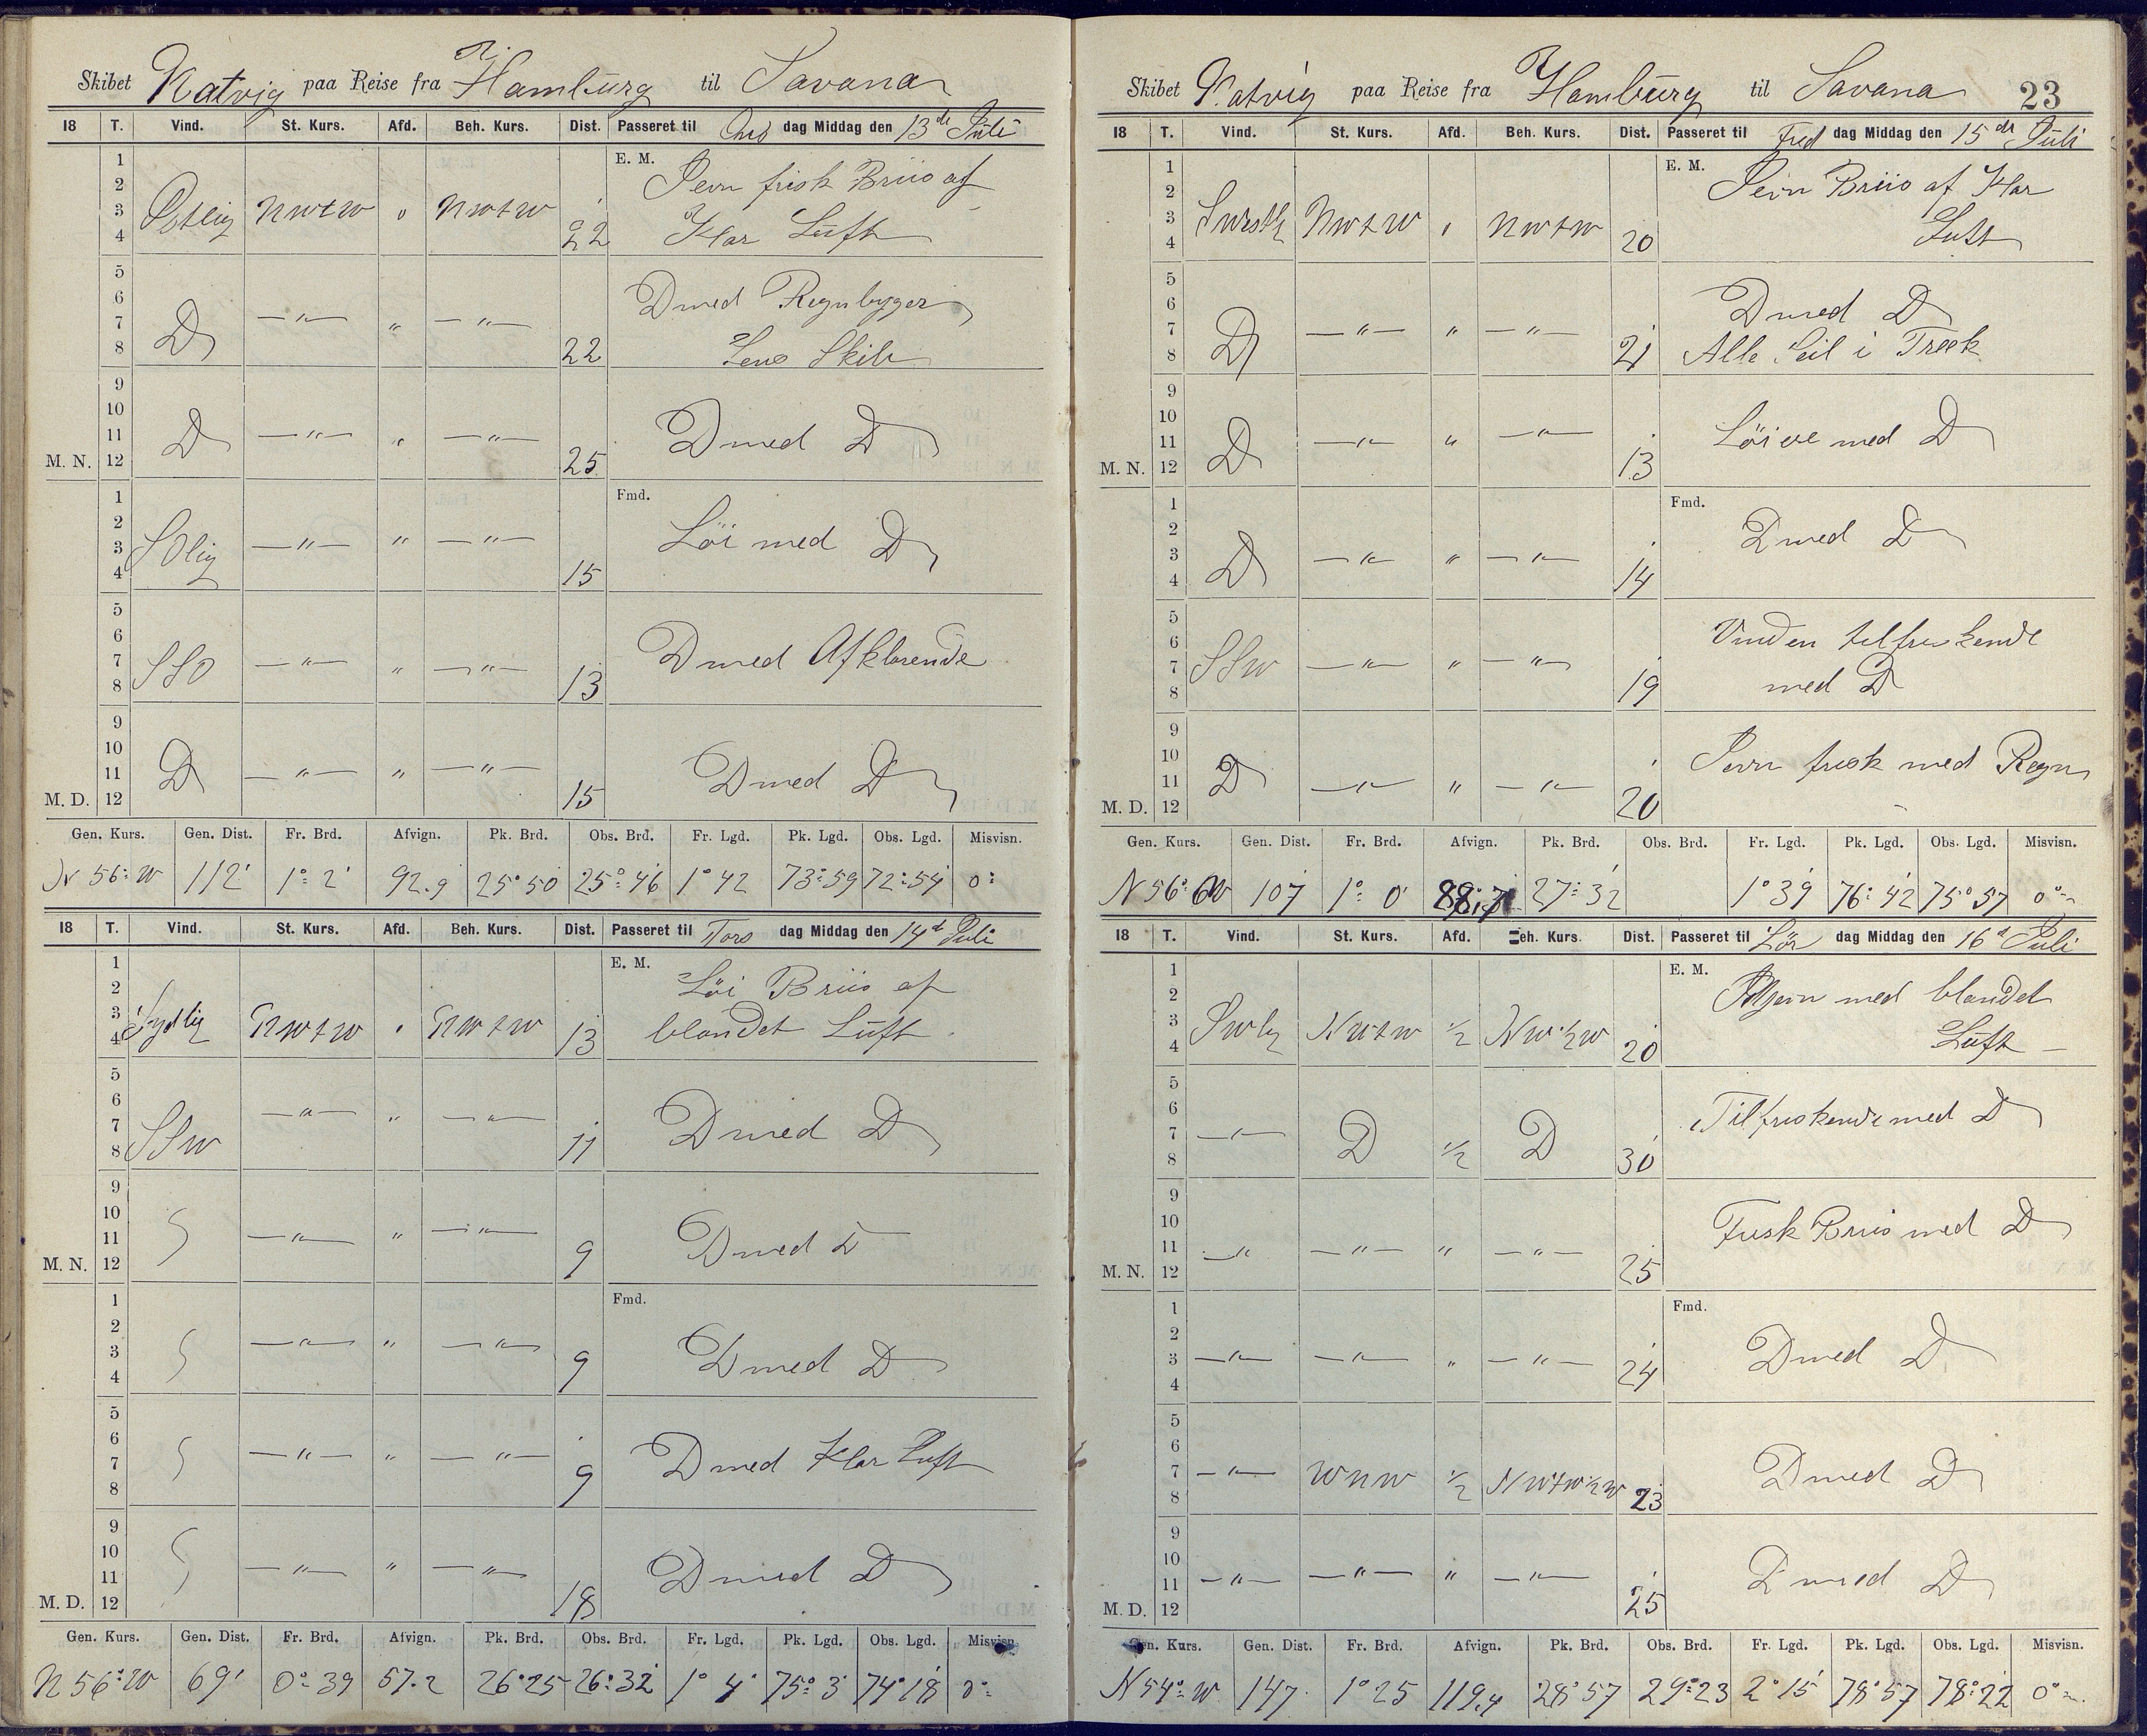 Skibet Natvig paa Reise fra Hamburg til Savana
18 T. Vind. St. Kurs. Afd. Beh. Kurs. Dist. Passeret til Ons dag Middag den 13de Juli
E. M.
1
2
3
4
Østlig NWtW " NWtW 22
Jevn frisk Briis af
Klar Luft
5
6
7
8
D — " — " — " — 22
D med Regnbyger
Lens Skib
9
10
11
M. N. 12
D — " — " — " — 25
D med D
Fmd.
1
2
3
4
SOlig — " — " — " — 15
Löi med D
5
6
7
8
SSO — " — " — " — 13
D med Afklarende
9
10
11
M. D. 12
D — " — " — " — 15
D med D
Gen. Kurs. Gen. Dist. Fr. Brd. Afvign. Pk. Brd. Obs. Brd. Fr. Lgd. Pk. Lgd. Obs. Lgd. Misvisn.
N 56° W 112' 1° 2' 92.9 25° 50 25° 46 1° 42 73° 59 72° 54 0°
18 T. Vind. St. Kurs. Afd. Beh. Kurs. Dist. Passeret til Tors dag Middag den 14d Juli
E. M.
1
2
3
4
Sydlig NWtW " NWtW 13
Löi Briis af
blandet Luft
5
6
7
8
SSW — " — " — " — 11
D med D
9
10
11
M. N. 12
S — " — " — " — 9
D med D
Fmd.
1
2
3
4
S — " — " — " — 9
D med D
5
6
7
8
S — " — " — " — 9
D med Klar Luft
9
10
11
M. D. 12
S — " — " — " — 18
D med D
Gen. Kurs. Gen. Dist. Fr. Brd. Afvign. Pk. Brd. Obs. Brd. Fr. Lgd. Pk. Lgd. Obs. Lgd. Misvisn.
N 56° W 69' 0° 39 57.2 26° 25 26° 32 1° 4' 75° 3 74° 18 0°
Skibet Natvig paa Reise fra Hamburg til Savana 23
18 T. Vind. St. Kurs. Afd. Beh. Kurs. Dist. Passeret til Fred dag Middag den 15de Juli
E. M.
1
2
3
4
NWtW " NWtW 20
Jevn Briis af Klar
Luft
5
6
7
8
D — " — " — " — 21
D med D
Alle Seil i Træk
9
10
11
M. N. 12
D — " — " — " — 13
Löiere med D
Fmd.
1
2
3
4
D — " — " — " — 14
D med D
5
6
7
8
SSW — " — " — " — 19
Vinden tilfriskende
med D
9
10
11
M. D. 12
D — " — " — " — 20
Jevn frisk med Regn
Gen. Kurs. Gen. Dist. Fr. Brd. Afvign. Pk. Brd. Obs. Brd. Fr. Lgd. Pk. Lgd. Obs. Lgd. Misvisn.
N 56° W 107 1° 0' 88.7 27° 32 1° 39 76° 42 75° 57 0°
18 T. Vind. St. Kurs. Afd. Beh. Kurs. Dist. Passeret til Lör dag Middag den 16d Juli
E. M.
1
2
3
4
SWlig NWtW 1/2 NW 1/2 W 20
med blandet
Luft
5
6
7
8
— " — D 1/2 D 30
Tilfriskende med D
9
10
11
M. N. 12
— " — " — " — " — 25
Frisk Briis med D
Fmd.
1
2
3
4
— " — " — " — " — 24
D med D
5
6
7
8
— " — WNW 1/2 NWtW 1/2 W 23
D med D
9
10
11
M. D. 12
— " — " — " — " — 25
D med D
Gen. Kurs. Gen. Dist. Fr. Brd. Afvign. Pk. Brd. Obs. Brd. Fr. Lgd. Pk. Lgd. Obs. Lgd. Misvisn.
N 54° W 147 1° 25 119.4 28° 57 29° 23 2° 15 78° 57 78° 22 0°